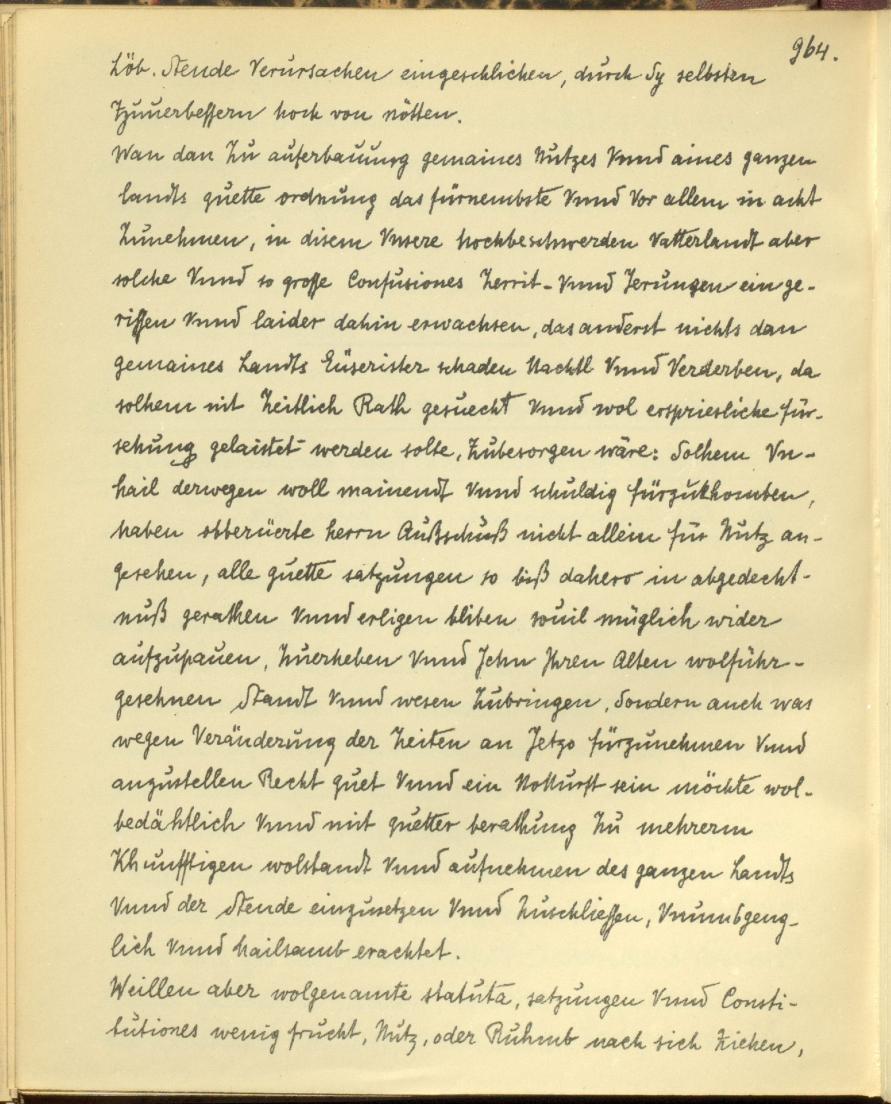 964.
Löb. Stende Verursachen eingeschlichen, durch Sy selbsten
Zuuerbessern hoch von nötten.
Wan dan Zu auferbauung gemaines Nutzes Vnnd aines ganzen
landts guette ordnung das fürnembste Vnnd Vor allem in acht
Zunehmen, in disem Vnsere hochbeschwerden Vatterlandt aber
solche Vnnd so grosse Confusiones Zerrit- Vnnd Jerungen einge-
rissen Vnnd laider dahin erwachsen, das anderst nichts dan
gemaines Landts Eüserister schaden Nachtl Vnnd Verderben, da
solhem nit Zeitlich Rath gesuecht Vnnd wol erspriesliche für-
sehung gelaistet werden solte, Zubesorgen wäre: Solhem Vn-
hail derwegen woll mainendt Vnnd schuldig fürzukhomben,
haben obberüerte herrn Außschuß nicht allein für Nutz an-
gesehen, alle guette satzungen so biß dahero in abgedecht-
nuß gerathen Vnnd erligen bliben souil müglich wider
aufzupauen, Zuerheben Vnnd Jehn Jhren Alten wolführ-
gesehnen Standt Vnnd wesen Zubringen, Sondern auch was
wegen Veränderung der Zeiten an Jetzo fürzunehmen Vnnd
anzustellen Recht guet Vnnd ein Notturft sein möchte wol-
bedähtlich Vnnd mit guetter berathung Zu mehrerm
Khunfftigen wolstandt Vnnd aufnehmen des ganzen Landts
Vnnd der Stende einzusetzen Vnnd Zuschliessen, Vnumbgeng-
lich Vnnd hailsamb erachtet.
Weillen aber wolgenamte statuta, satzungen Vnnd Consti-
tutiones wenig frucht, Nutz, oder Ruhmb nach sich Ziehen,